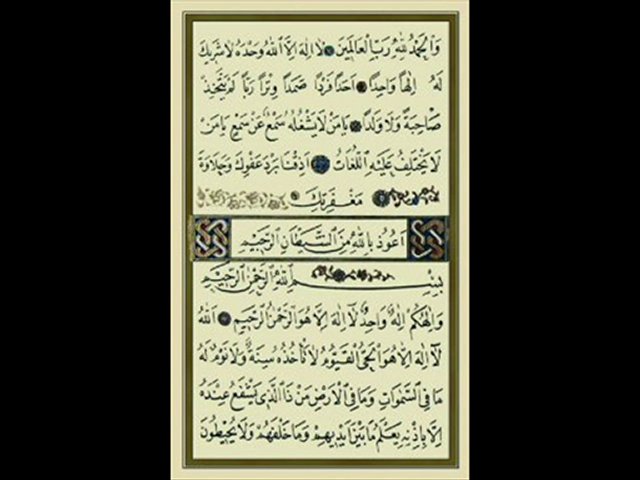 وَالْحَمْدُ لِلّٰهِ رَبِّ الْعَالَمِينَ لَا اِلٰهَ اِلَّا اللّٰهُ وَحْدَهُ لَا شَرِيكَ
لَهُ اِلٰهًا وَاحِدًا اَحَدًا فَرْدًا صَمَدًا وِتْرًا رَبًّا لَمْ يَتَّخِذْ
صَاحِبَةً وَلَا وَلَدًا يَا مَنْ لَا يَشْغَلُهُ سَمْعٌ عَنْ سَمْعٍ يَا مَنْ
لَا تَخْتَلِفُ عَلَيْهِ اللُّغَاتُ اَذِقْنَا بَرْدَ عَفْوِكَ وَحَلَاوَةَ
مَغْفِرَتِكَ
اَعُوذُ بِاللّٰهِ مِنَ الشَّيْطَانِ الرَّجِيمِ
بِسْمِ اللّٰهِ الرَّحْمٰنِ الرَّحِيمِ
وَاِلٰهُكُمْ اِلٰهٌ وَاحِدٌ لَا اِلٰهَ اِلَّا هُوَ الرَّحْمٰنُ الرَّحِيمُ اَللّٰهُ
لَا اِلٰهَ اِلَّا هُوَ الْحَيُّ الْقَيُّومُ لَا تَأْخُذُهُ سِنَةٌ وَلَا نَوْمٌ لَهُ
مَا فِي السَّمٰوَاتِ وَمَا فِي الْاَرْضِ مَنْ ذَا الَّذِي يَشْفَعُ عِنْدَهُ
اِلَّا بِاِذْنِهِ يَعْلَمُ مَا بَيْنَ اَيْدِيهِمْ وَمَا خَلْفَهُمْ وَلَا يُحِيطُونَ